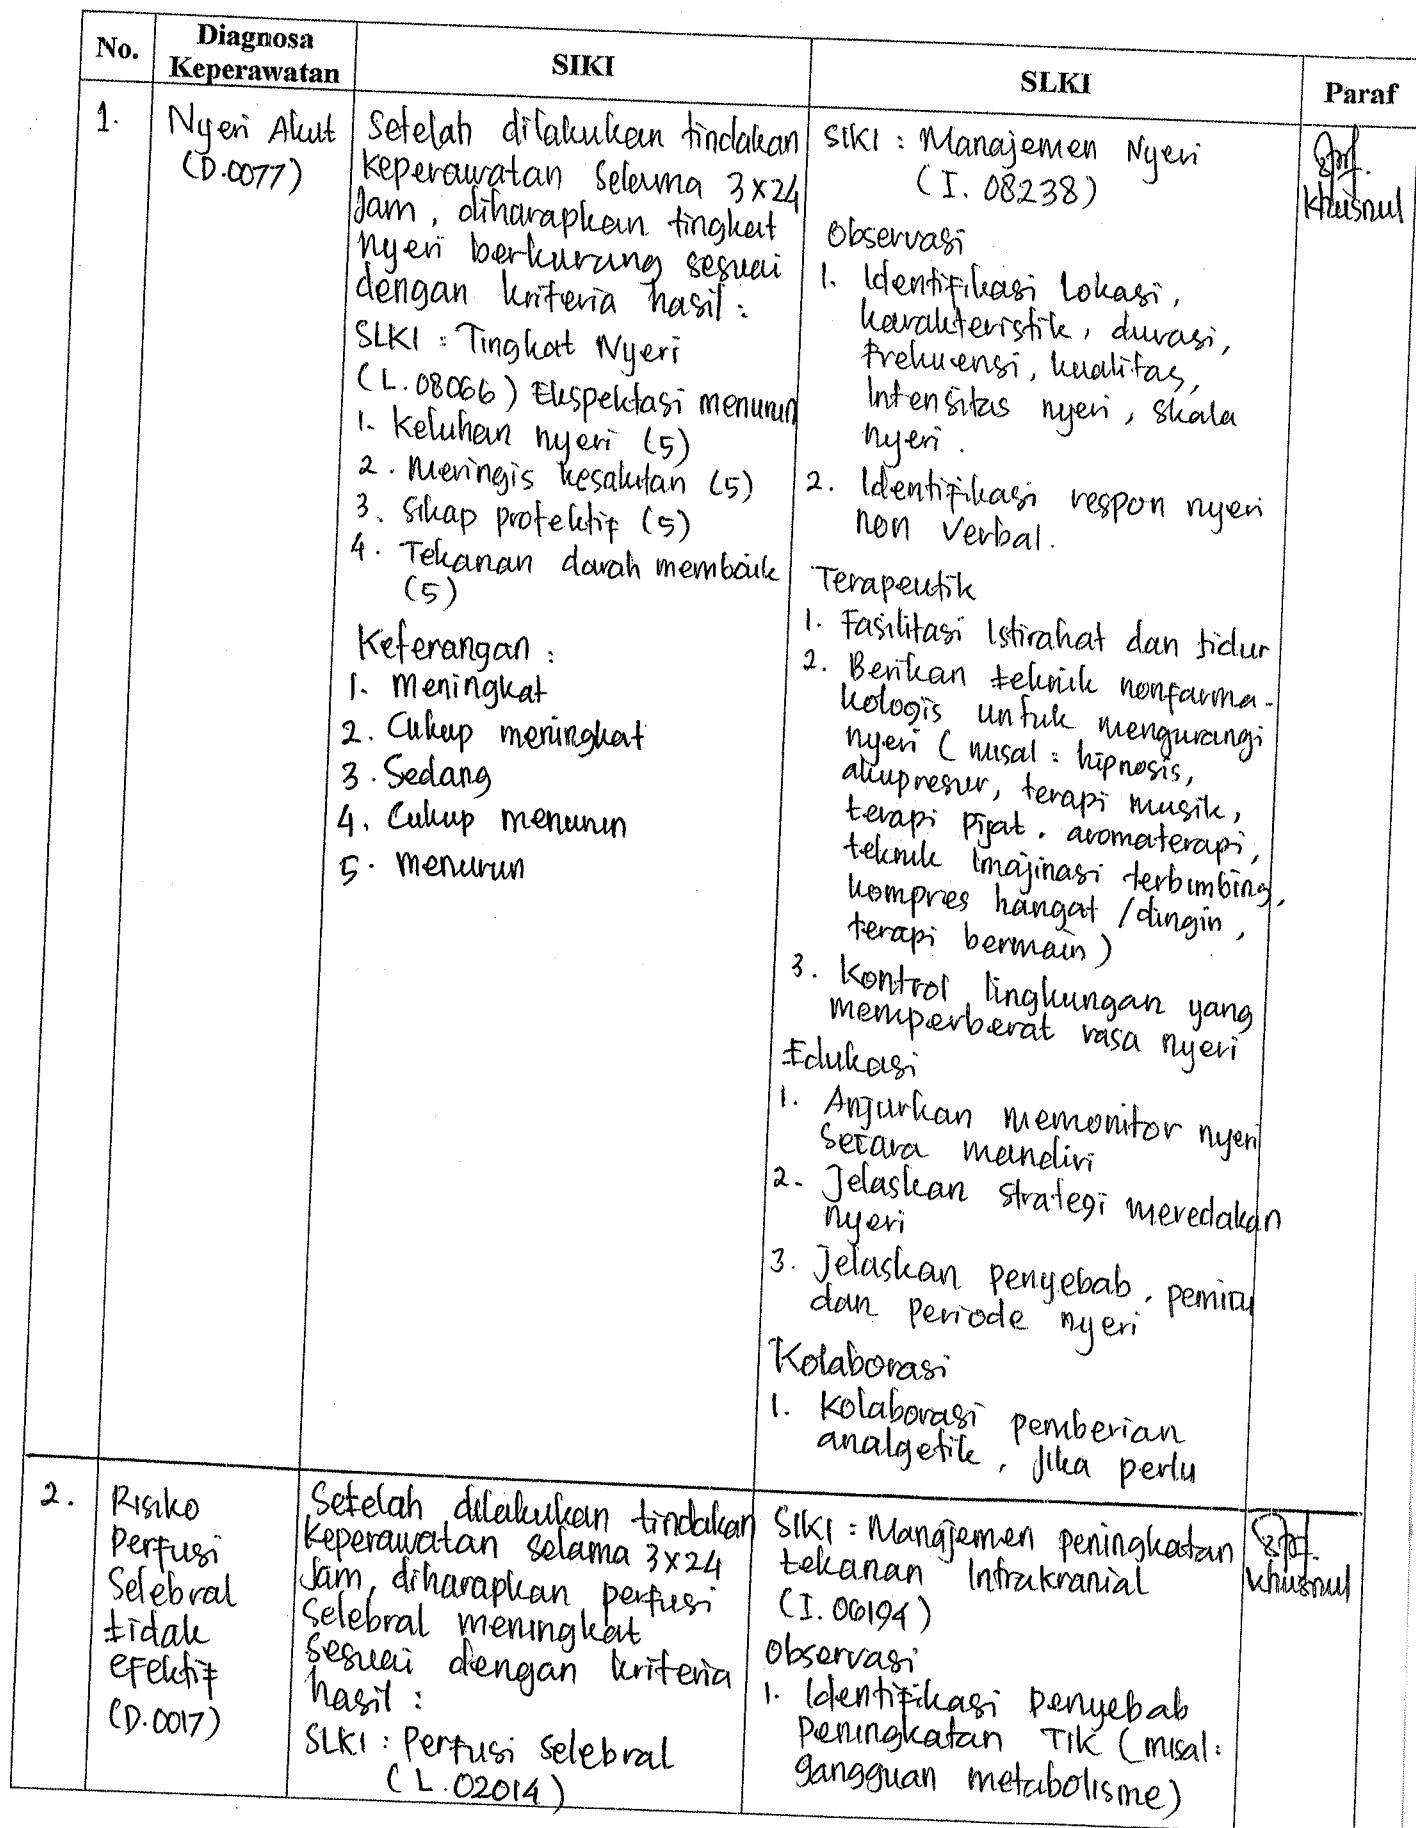 No.
Diagnosa
Keperawatan
SIKI
SLKI
Paraf
1.
Nyeri Akut
(D.0077)
Setelah dilakukan tindakan
keperawatan selama 3x24
Jam, diharapkan tingkat
nyeri berkurang sesuai
dengan kriteria hasil :
SLKI : Tingkat Nyeri
(L.08066) Ekspektasi menurun
1. Keluhan nyeri (5)
2. Meringis kesakitan (5)
3. Sikap protektif (5)
4. Tekanan darah membaik
(5)
Keterangan :
1. Meningkat
2. Cukup meningkat
3. Sedang
4. Cukup menurun
5. menurun
SIKI : Manajemen Nyeri
(I. 08238)
Observasi
1. Identifikasi Lokasi,
karakteristik, durasi,
frekuensi, kualitas,
Intensitas nyeri, skala
nyeri.
2. Identifikasi respon nyeri
non verbal.
Terapeutik
1. Fasilitasi Istirahat dan tidur
2. Berikan teknik nonfarma-
kologis untuk mengurangi
nyeri (misal : hipnosis,
akupresur, terapi musik,
terapi pijat, aromaterapi,
teknik Imajinasi terbimbing,
kompres hangat /dingin,
terapi bermain)
3. Kontrol lingkungan yang
memperberat rasa nyeri
Edukasi
1. Anjurkan memonitor nyeri
secara mandiri
2. Jelaskan strategi meredakan
nyeri
3. Jelaskan penyebab, pemicu
dan periode nyeri
Kolaborasi
1. Kolaborasi pemberian
analgetik, jika perlu
Khusnul
2.
Risiko
Perfusi
Selebral
tidak
efektif
(D.0017)
Setelah dilakukan tindakan
keperawatan selama 3x24
Jam, diharapkan perfusi
selebral meningkat
sesuai dengan kriteria
hasil :
SLKI : Perfusi selebral
(L.02014)
SIKI : Manajemen peningkatan
tekanan Intrakranial
(I.06194)
Observasi
1. Identifikasi penyebab
Peningkatan TIK (misal :
gangguan metabolisme)
Khusnul